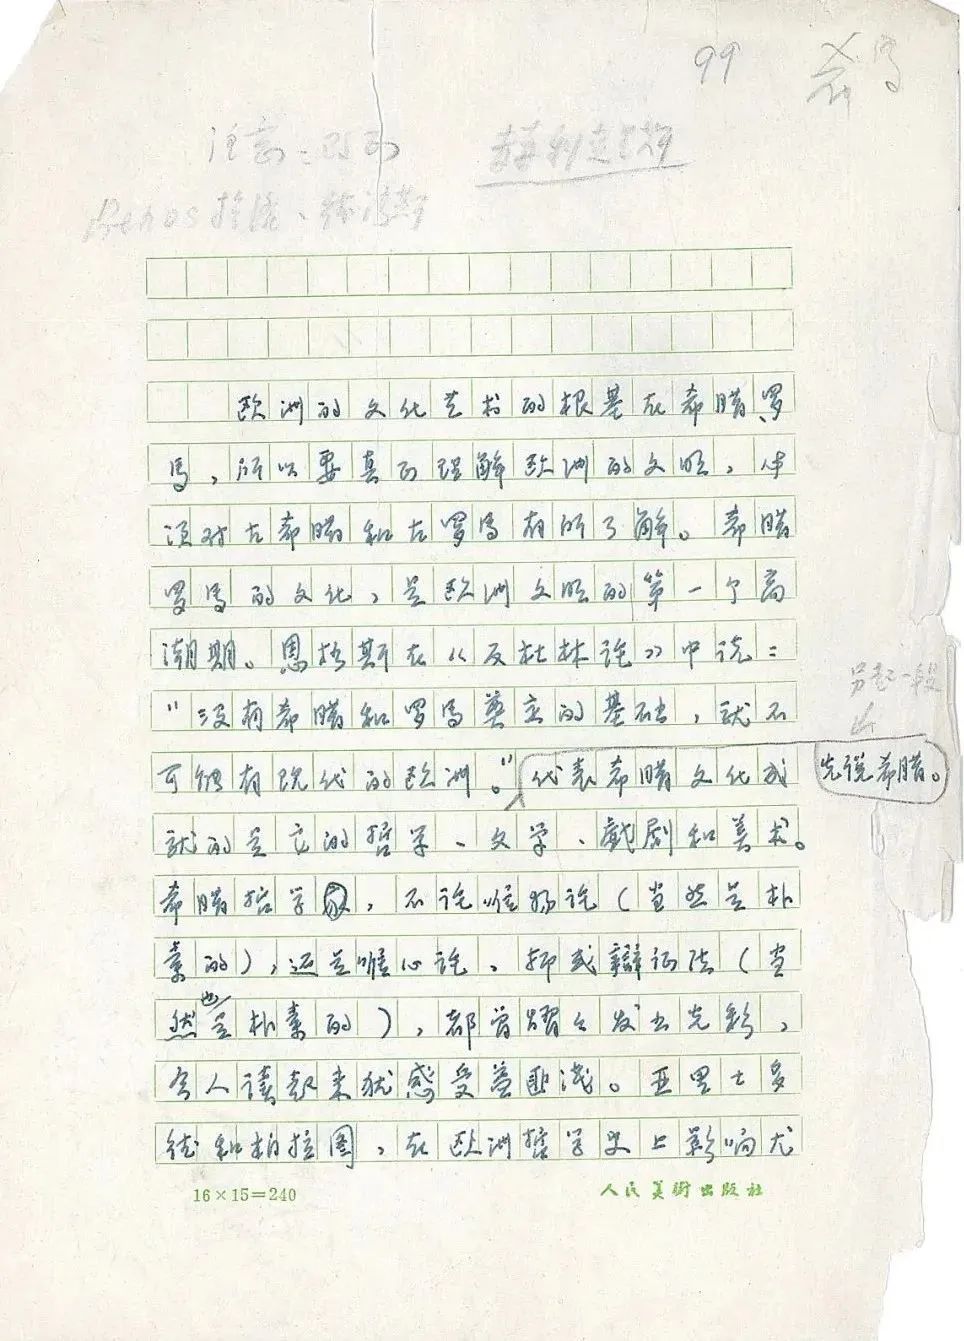 99
欧洲的文化艺术的根基在希腊罗
马，所以要真正理解欧洲的文明，必
须对古希腊和古罗马有所了解。希腊
罗马的文化，是欧洲文明的第一个高
潮期。恩格斯在《反杜林论》中说：
“没有希腊和罗马奠立的基础，就不
可能有现代的欧洲。”代表希腊文化成
先说希腊。
另起一段
就的是它的哲学、文学、戏剧和美术。
希腊哲学家，不论唯物论（当然是朴
素的），还是唯心论，抑或辩证法（当
然也是朴素的），都曾耀々发出光彩，
令人读起来犹感受益匪浅。亚里士多
德和柏拉图，在欧洲哲学史上影响尤
16×15=240
人民美術出版社